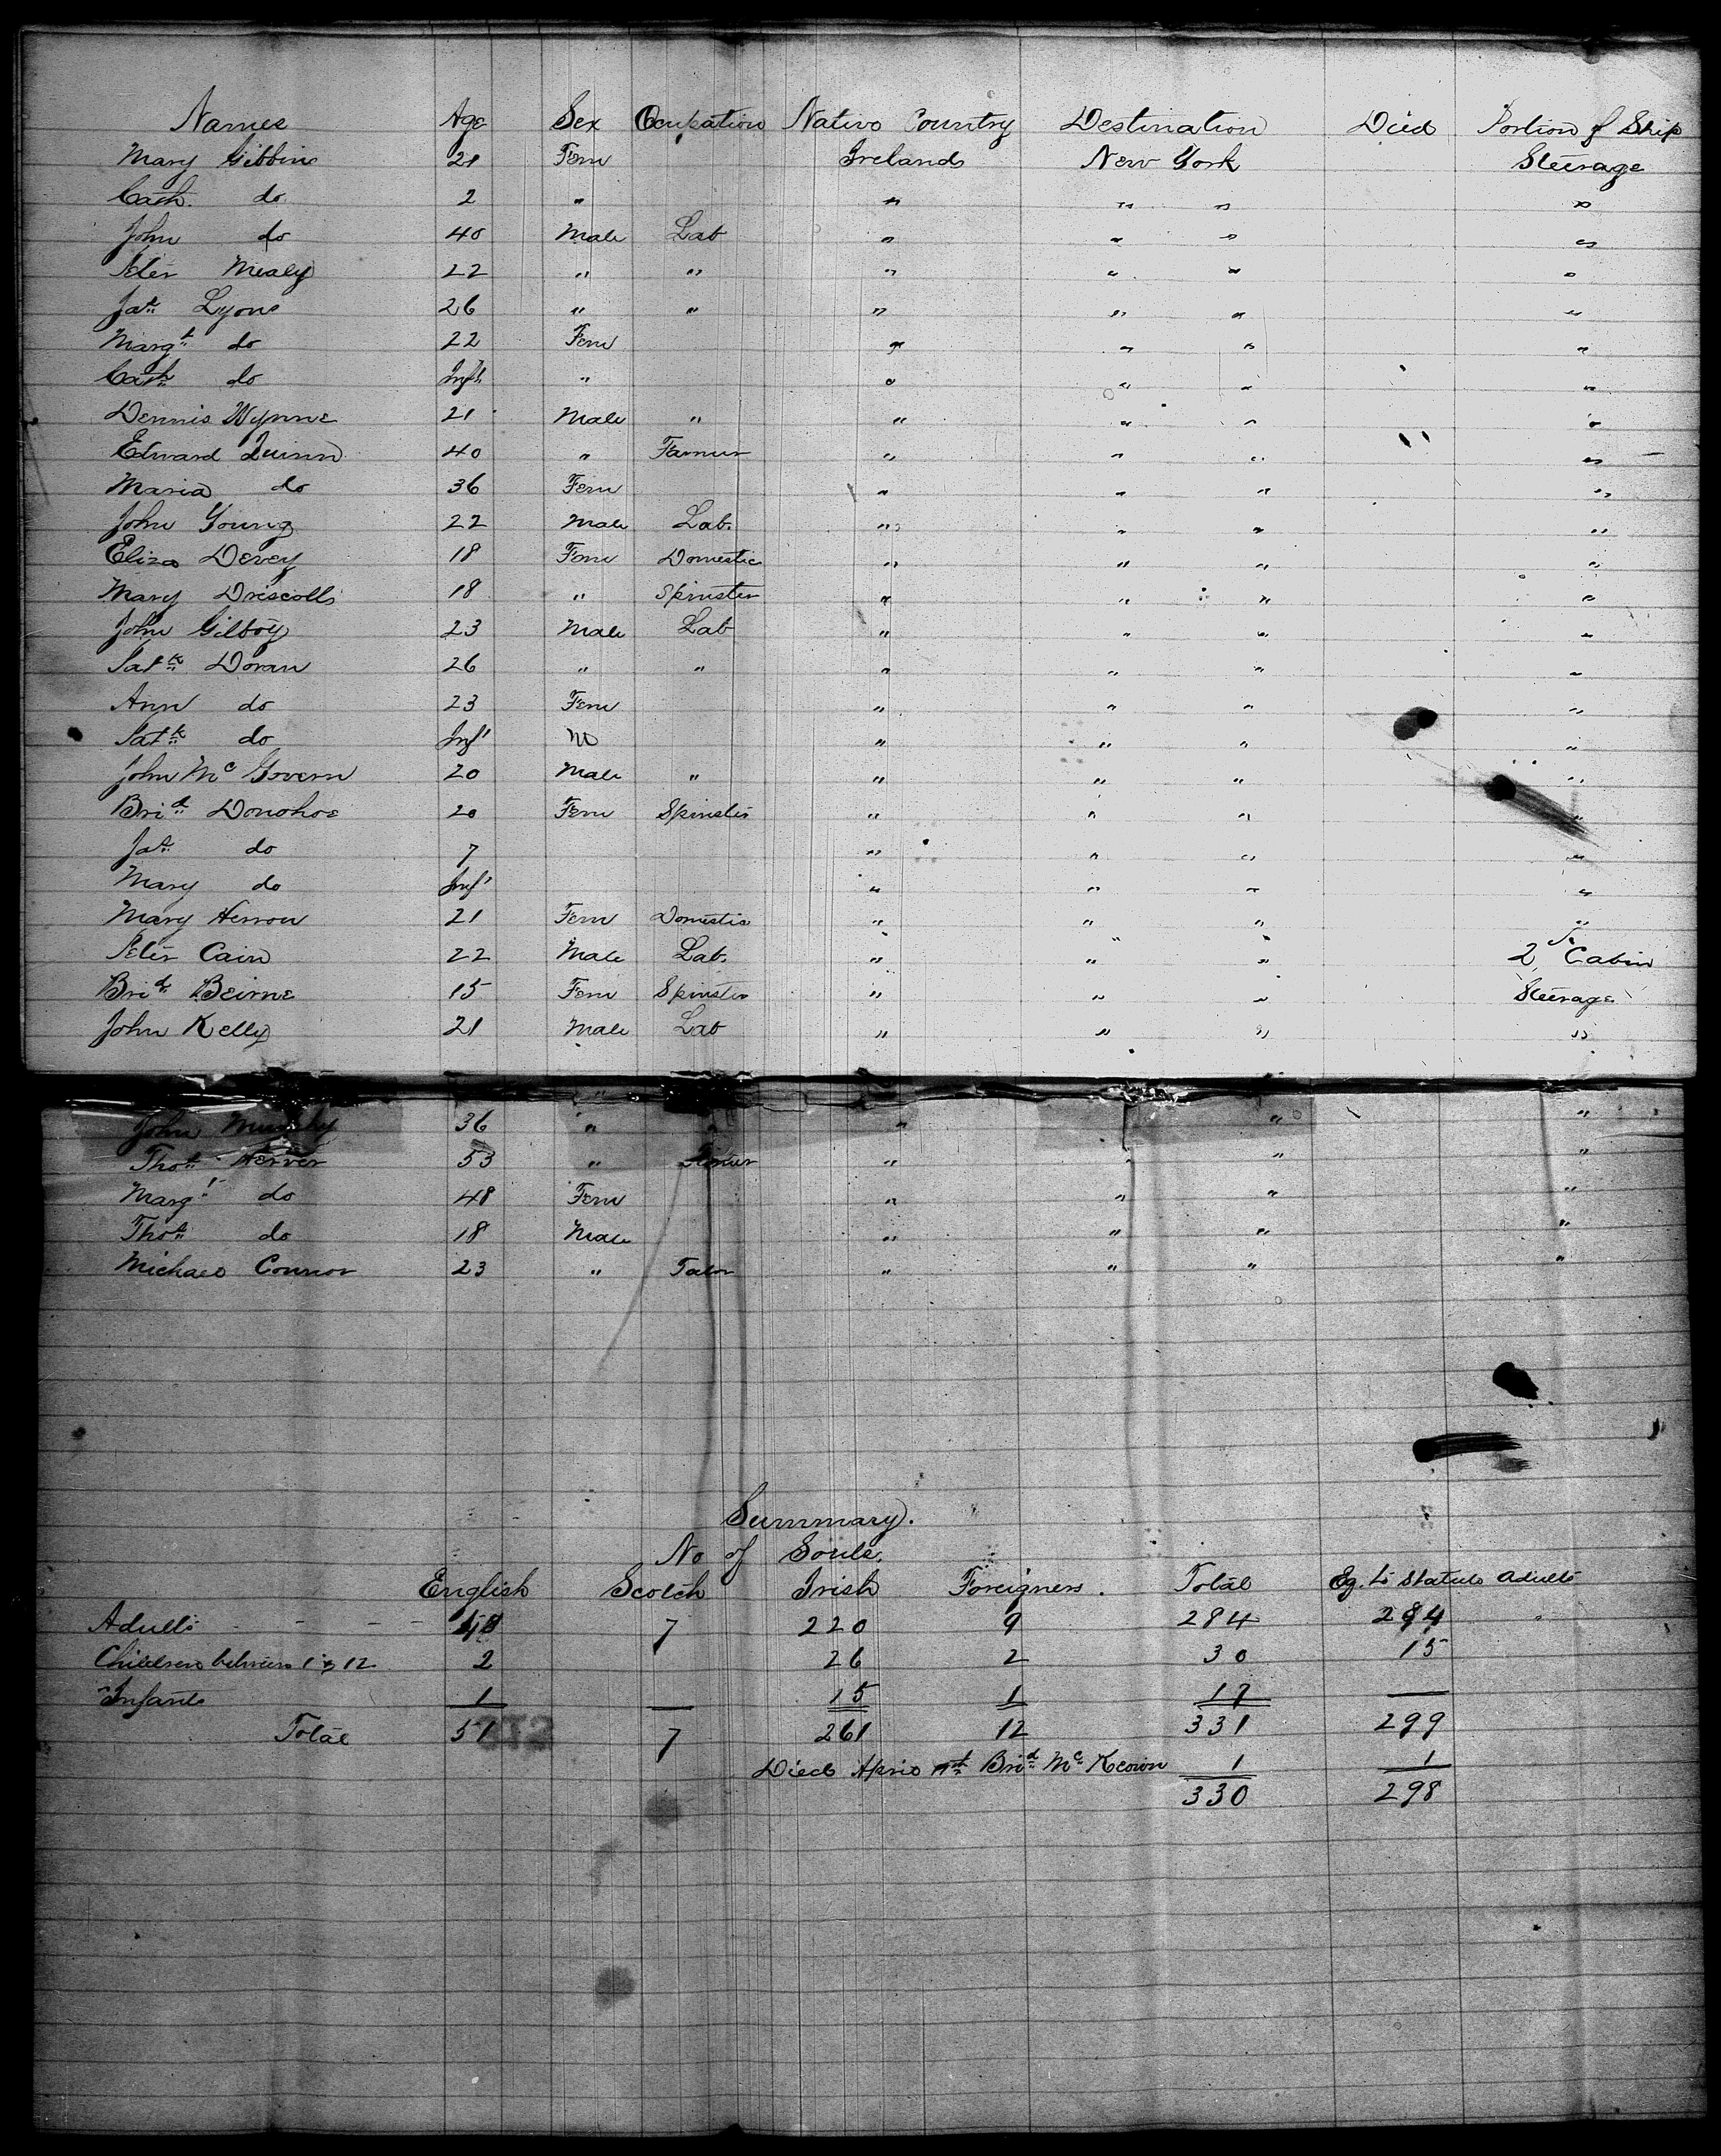 Names Age Sex Ocupation Native Country Destination Died Portion of Ship
Mary Gibbins 21 Fem Ireland New York Steerage
Cath. do 2 " " " " "
John do 40 Male Lab " " " "
Peter Mealy 22 " " " " " "
Jas Lyons 26 " " " " " "
Margt do 22 Fem " " " "
Cath do Inft " " " " "
Dennis Wynne 21 Male " " " " "
Edward Quinn 40 " Farmer " " " "
Maria do 36 Fem " " " "
John Young 22 Male Lab. " " " "
Eliza Devey 18 Fem Domestic " " " "
Mary Driscoll 18 " Spinster " " " "
John Gilboy 23 Male Lab " " " "
Patk Doran 26 " " " " " "
Ann do 23 Fem " " " "
Patk do Inft M " " " "
John Mc Govern 20 Male " " " " "
Brid Donohoe 20 Fem Spinster " " " "
Jas do 7 " " " "
Mary do Inft " " " "
Mary Herron 21 Fem Domestic " " " "
Peter Cain 22 Male Lab. " " " 2 Cabin
Brid Beirne 15 Fem Spinster " " " Steerage
John Kelly 21 Male Lab " " " "
John Murphy 36 " " " " "
Thos 53 " " " " "
Margt do 48 Fem " " " "
Thos do 18 Male " " " "
Michael Connor 23 " " " " "
Summary.
No of Souls.
English Scotch Irish Foreigners. Total Eq. to Statute Adults
Adults - - - 48 7 220 9 284 284
Children between 1 & 12 2 26 2 30 15
Infants 1 — 15 1 17 —
Total 51 7 261 12 331 299
Died Brid Mc Keown 1 1
330 298